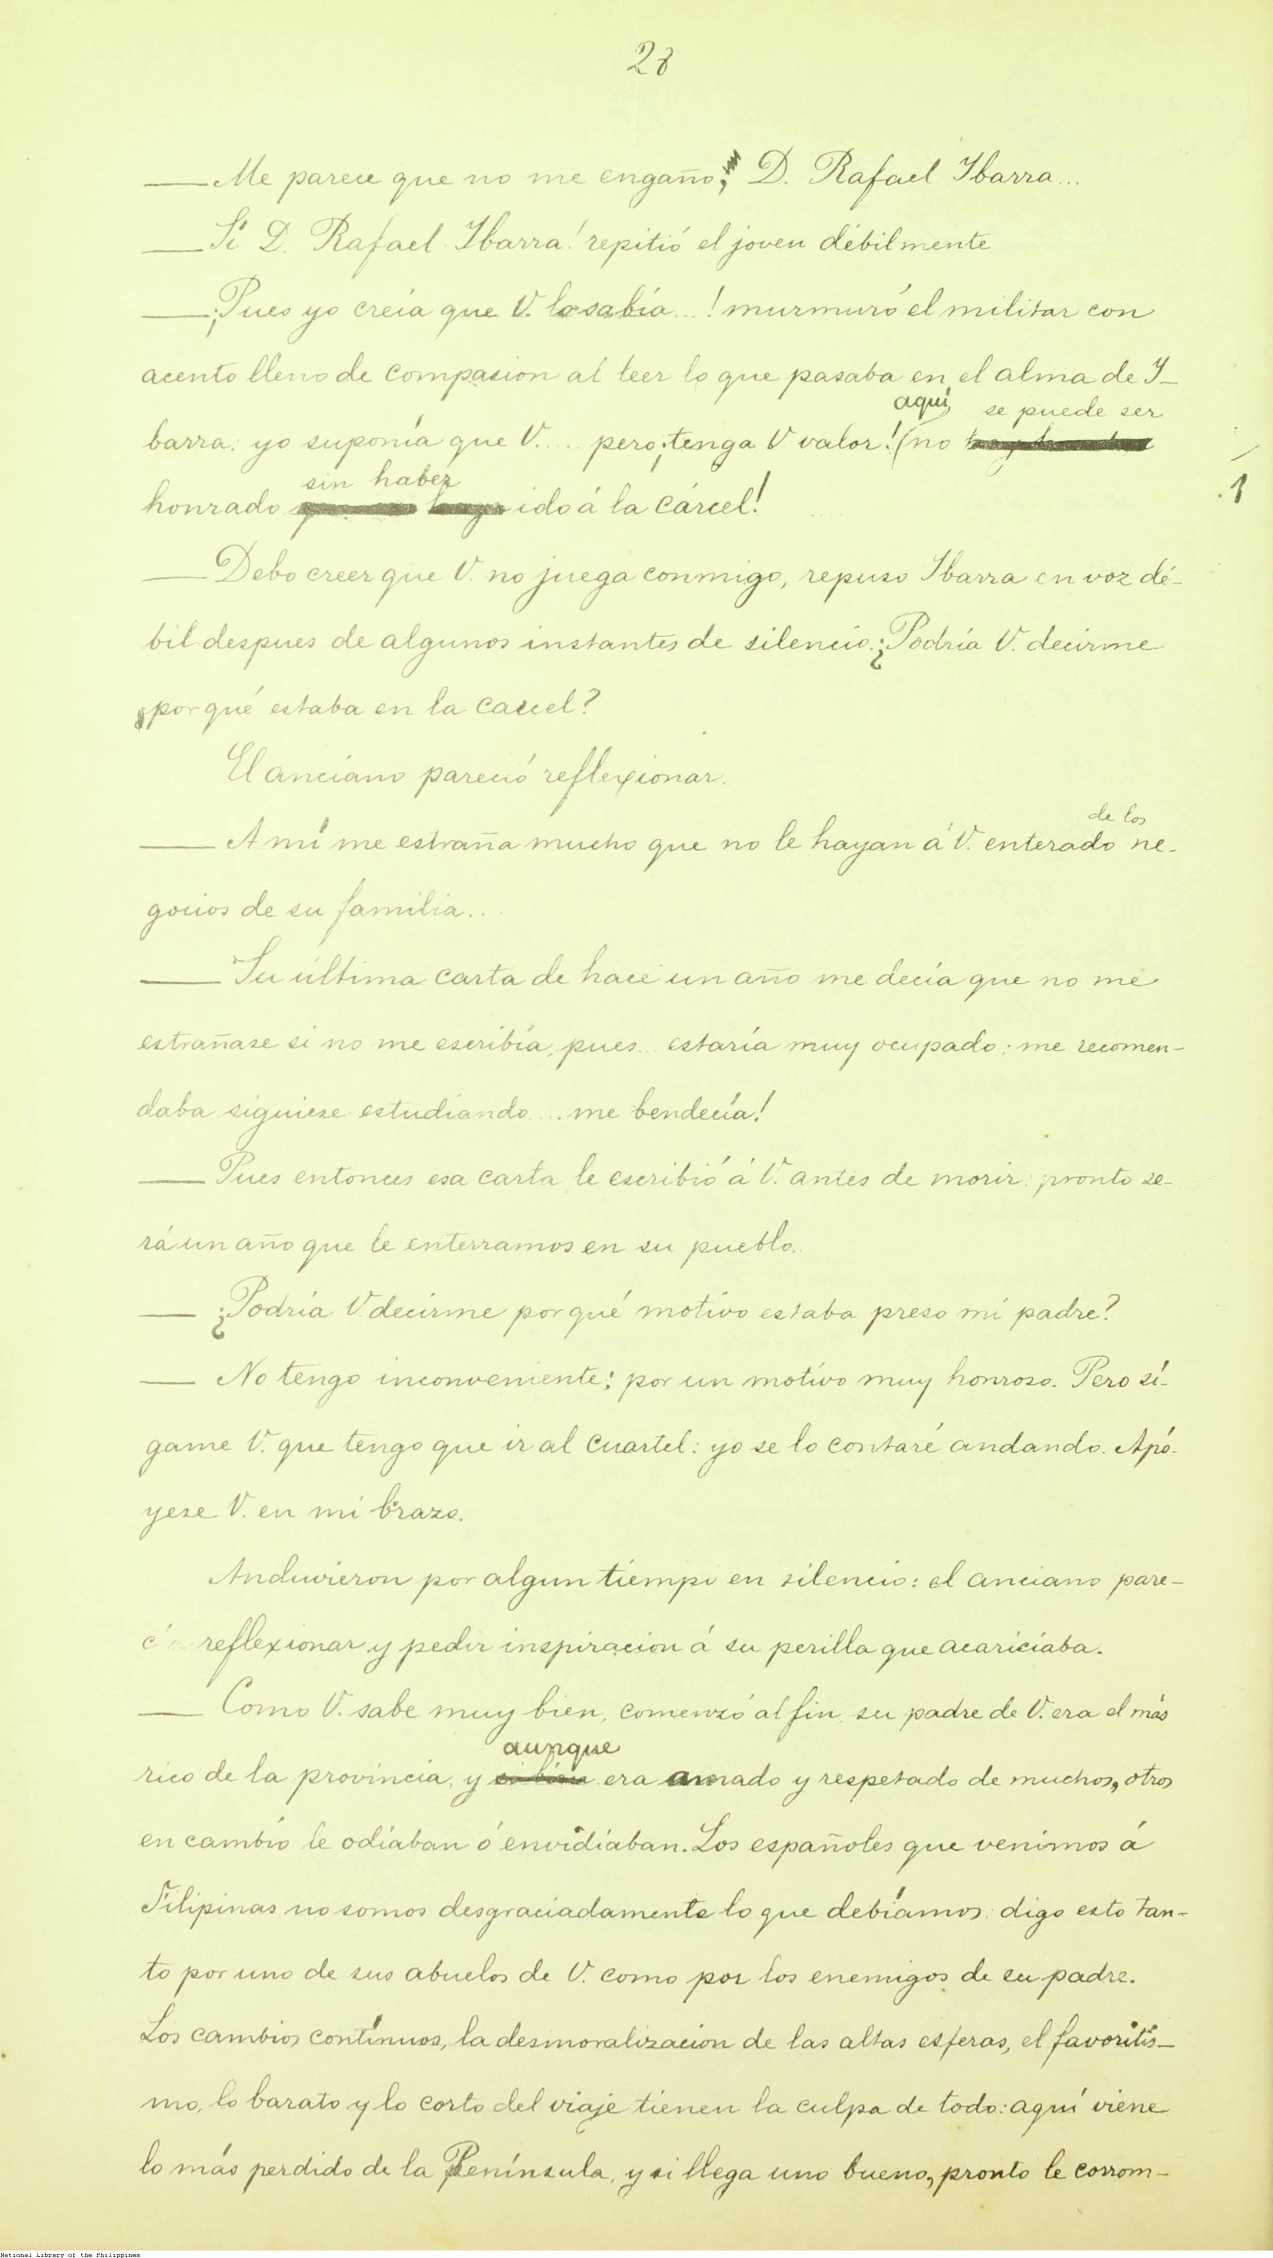 28
— Me parece que no me engaño; D. Rafael Ibarra...
— Sí D. Rafael Ibarra! repitió el joven débilmente
— ¡Pues yo creía que V. lo sabía...! murmuró el militar con
acento lleno de compasion al leer lo que pasaba en el alma de I-
aquí, se puede ser
barra: yo suponía que V.... pero ¡tenga V valor! (no
sin haber
honrado ido á la cárcel!
1
— Debo creer que V. no juega conmigo, repuso Ibarra en voz dé-
bil despues de algunos instantes de silencio. ¿Podría V. decirme
por qué estaba en la carcel?
El anciano pareció reflexionar.
— A mí me estraña mucho que no le hayan á V. enterado ne-
de los
gocios de su familia..
— Su última carta de hace un año me decía que no me
estrañase si no me escribía, pues.. estaría muy ocupado; me recomen-
daba siguiese estudiando.... me bendecía!
— Pues entonces esa carta le escribió á V. antes de morir: pronto se-
rá un año que le enterramos en su pueblo.
— ¿Podría V decirme por qué motivo estaba preso mi padre?
— No tengo inconveniente; por un motivo muy honroso. Pero sí-
game V. que tengo que ir al cuartel: yo se lo contaré andando. Apó-
yese V. en mi brazo.
Anduvieron por algun tiempo en silencio: el anciano pare-
cía reflexionar y pedir inspiracion á su perilla que acariciaba.
— Como V. sabe muy bien, comenzó al fin, su padre de V. era el más
aunque
rico de la provincia, y si bien era amado y respetado de muchos, otros
en cambio le odiaban ó envidiaban. Los españoles que venimos á
Filipinas no somos desgraciadamente lo que debíamos: digo esto tan-
to por uno de sus abuelos de V. como por los enemigos de su padre.
Los cambios contínuos, la desmoralizacion de las altas esferas, el favoritis-
mo, lo barato y lo corto del viaje tienen la culpa de todo: aquí viene
lo más perdido de la Península, y si llega uno bueno, pronto le corrom-
National Library of the Philippines